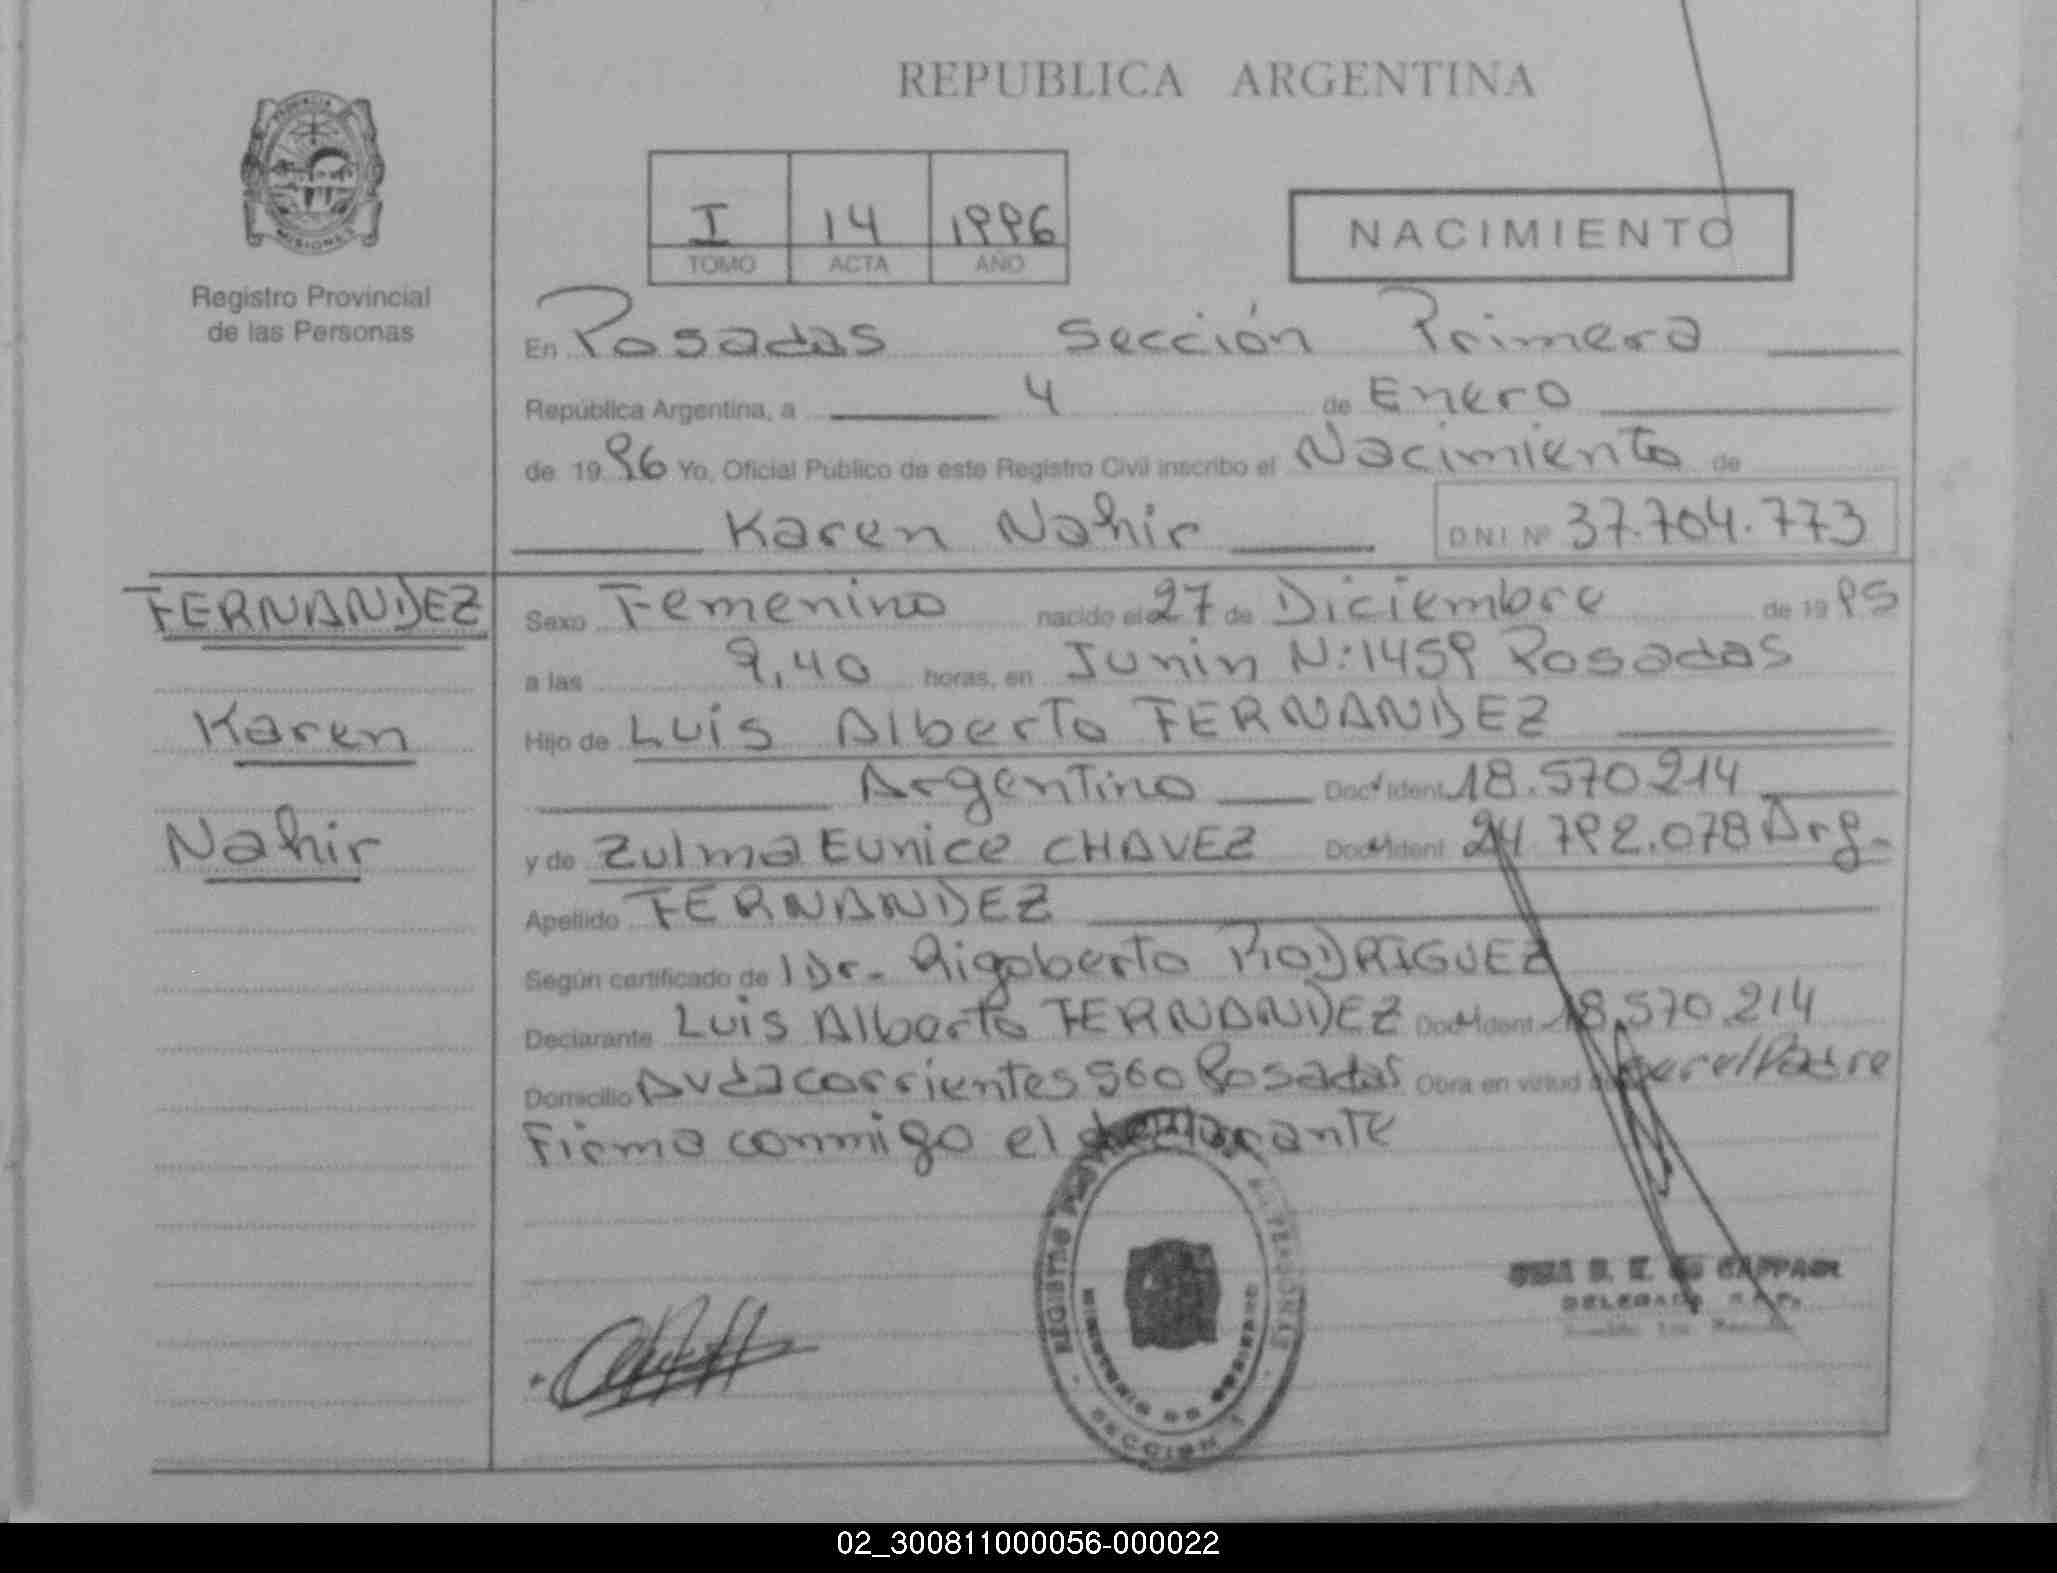 REPUBLICA ARGENTINA
PROVINCIA
MISIONES
Registro Provincial
de las Personas
I 14 1996
TOMO ACTA AÑO
NACIMIENTO
En Posadas Sección Primera
República Argentina, a 4 de Enero
de 1996 Yo, Oficial Público de este Registro Civil inscribo el Nacimiento de
Karen Nahir D N I Nº 37.704.773
FERNANDEZ
Karen
Nahir
Sexo Femenino nacido el 27 de Diciembre de 1995
a las 9,40 horas, en Junin N:1459 Posadas
Hijo de Luis Alberto FERNANDEZ
Argentino Doc. Ident. 18.570.214
y de Zulma Eunice CHAVEZ Doc. Ident 24.792.078 Arg.
Apellido FERNANDEZ
Según certificado de l Dr. Rigoberto RODRIGUEZ
Declarante Luis Alberto FERNANDEZ Doc. Ident. 18.570.214
Domicilio Avda corrientes 560 Posadas Obra en virtud de ser el Padre
Firma conmigo el declarante
REGISTRO PERSONAS
MINISTERIO DE GOBIERNO
SECCION 1
DELEGADA
02_300811000056-000022